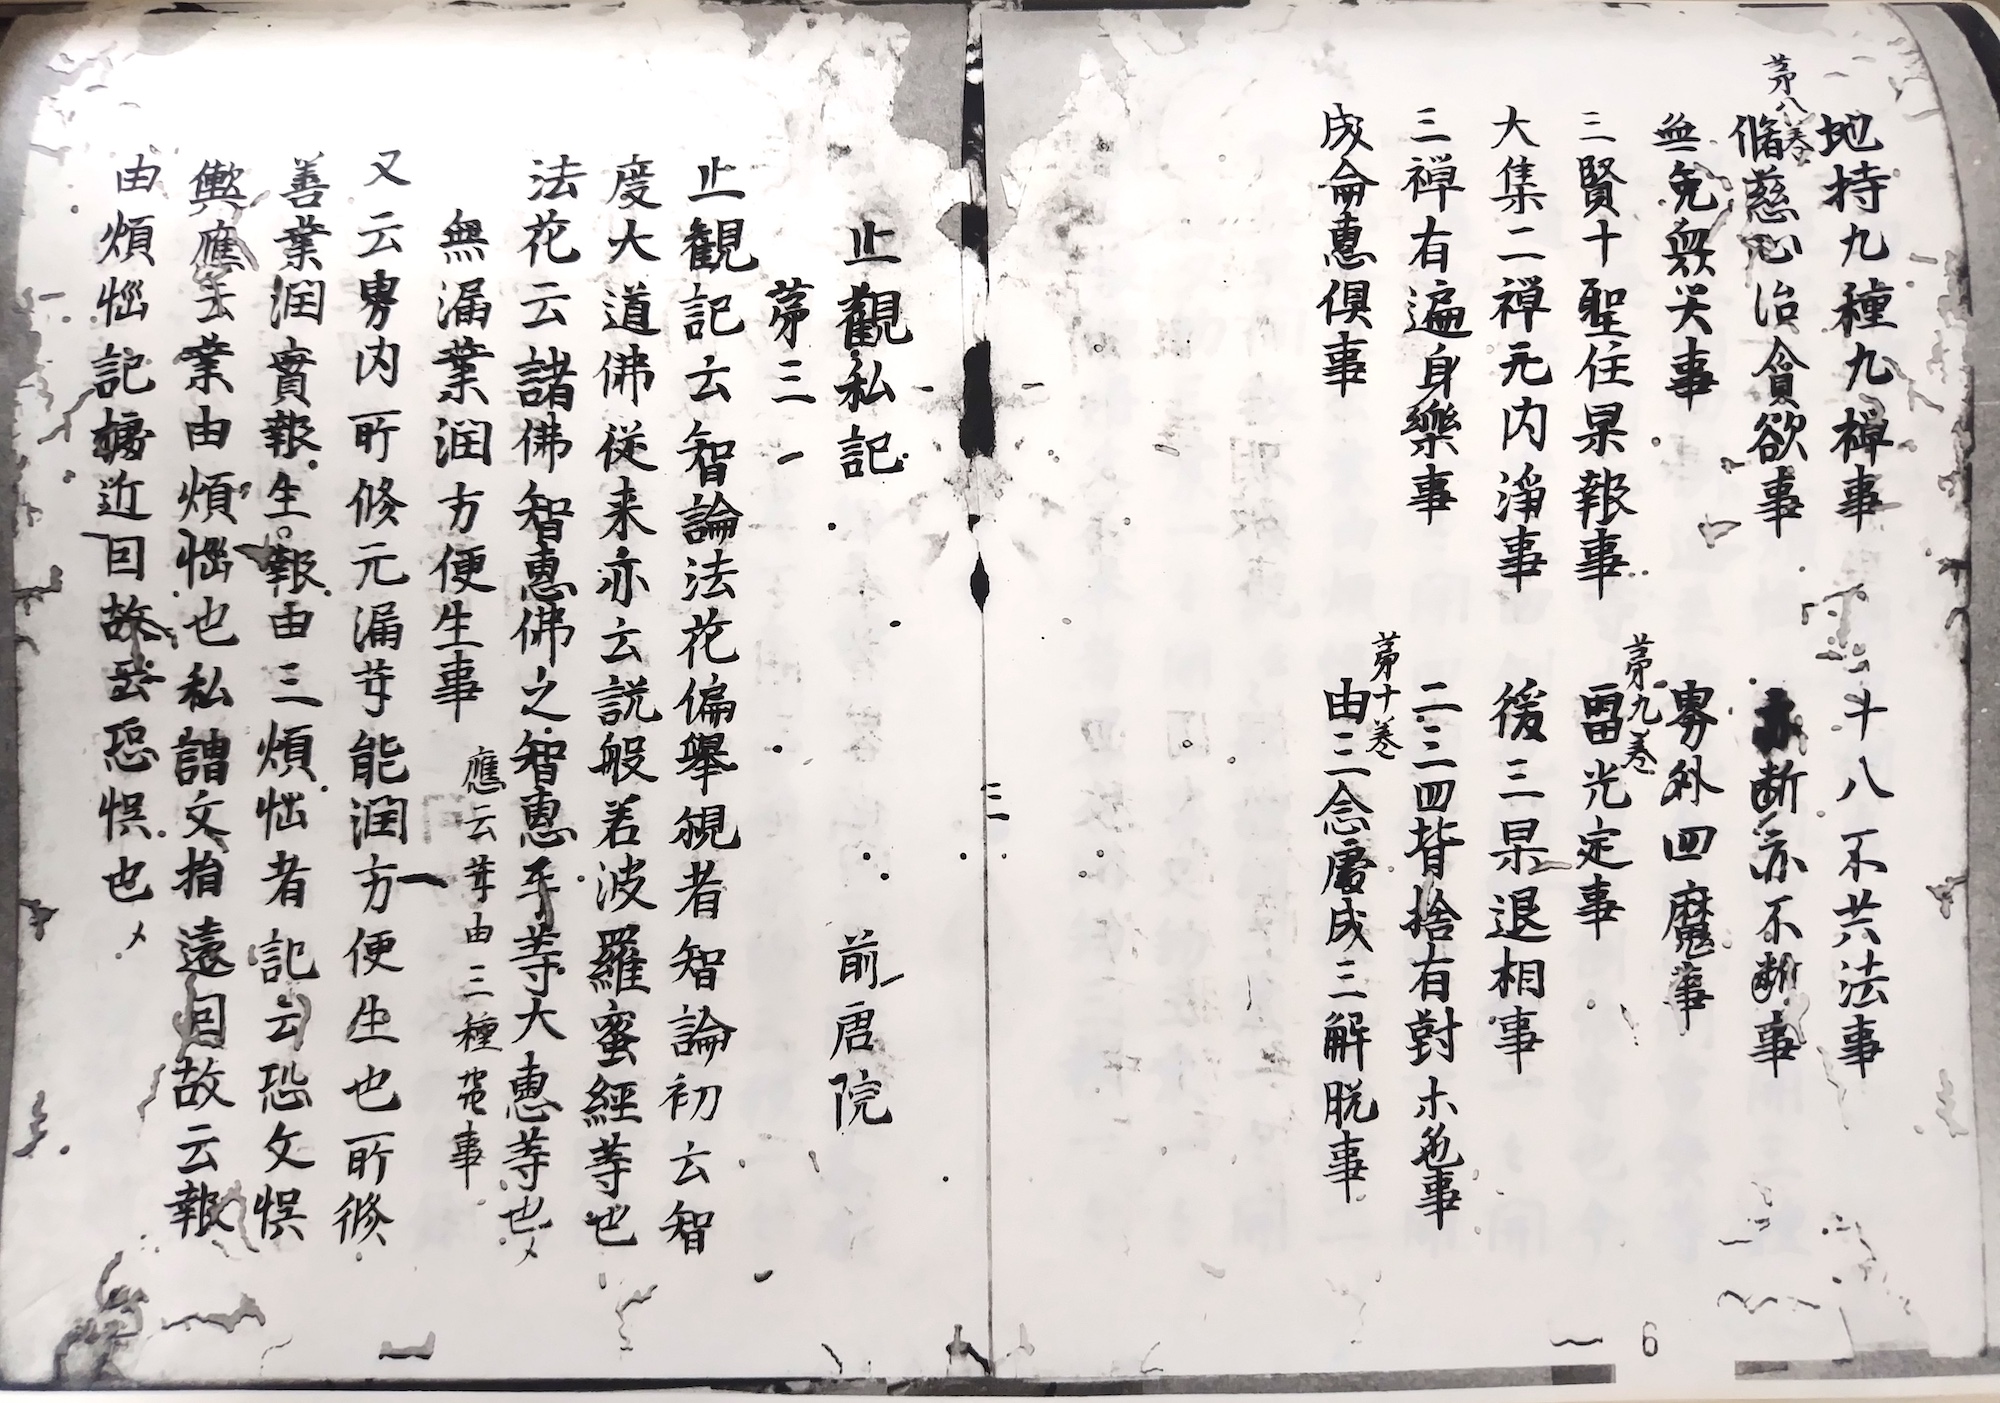 地持九種九禅事
十八不共法事
第八卷
脩慈心治貪欲事
断亦不断事
無免無失事
界外四魔事
三賢十聖住果報事
第九卷
留光定事
大集二禅无内淨事
後三果退相事
三禅有遍身樂事
二三四皆捨有對木色事
第十卷
成侖惠俱事
由三念處成三解脱事
6
三
止觀私記
前唐院
第三
止観記云智論法花偏舉覙者智論初云智
度大道佛従来亦云説般若波羅蜜經等也
法花云諸佛智惠佛之智惠平等大惠等也
無漏業润方便生事
應云芽由三種
事
又云界内所修无漏芽能润方便生也所修
善業润實報生報由三煩惱者記云恐文悮
歟應云業由煩惱也私謂文指遠因故云報
由煩惱記據近因故云恐悮也